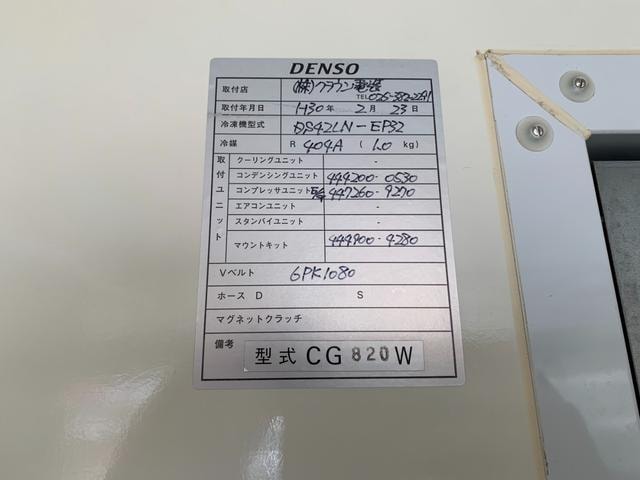 DENSO
取付店 (株)クラウン電装
TEL
取付年月日 H30 年 2 月 23 日
冷凍機型式 DS42LN-EP32
冷媒 R 404A ( 1.0 kg)
取付ユニット
クーリングユニット -
コンデンシングユニット 444200-0530
コンプレッサユニット 447260-9270
エアコンユニット -
スタンバイユニット -
マウントキット 444900-9280
Vベルト 6PK1080
ホース D S
マグネットクラッチ
備考 型式 CG 820 W